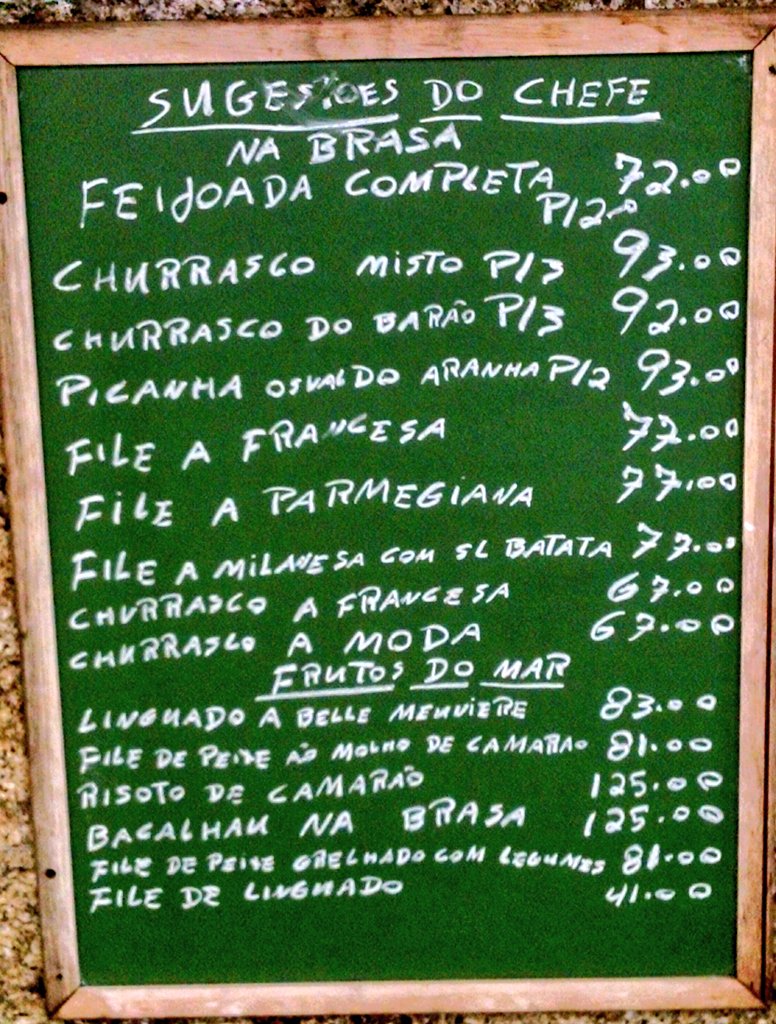 SUGESTOES DO CHEFE
NA BRASA
FEIJOADA COMPLETA 72.00
P/2
CHURRASCO MISTO P/3 93.00
CHURRASCO DO BARÃO P/3 92.00
PICANHA OSVALDO ARANHA P/2 93.00
FILE A FRANCESA 77.00
FILE A PARMEGIANA 77.00
FILE A MILANESA COM SL BATATA 77.00
CHURRASCO A FRANCESA 67.00
CHURRASCO A MODA 67.00
FRUTOS DO MAR
LINGUADO A BELLE MENVIERE 83.00
FILE DE PEIXE AO MOLHO DE CAMARAO 81.00
RISOTO DE CAMARÃO 125.00
BACALHAU NA BRASA 125.00
FILE DE PEIXE GRELHADO COM LEGUMES 81.00
FILE DE LINGUADO 41.00